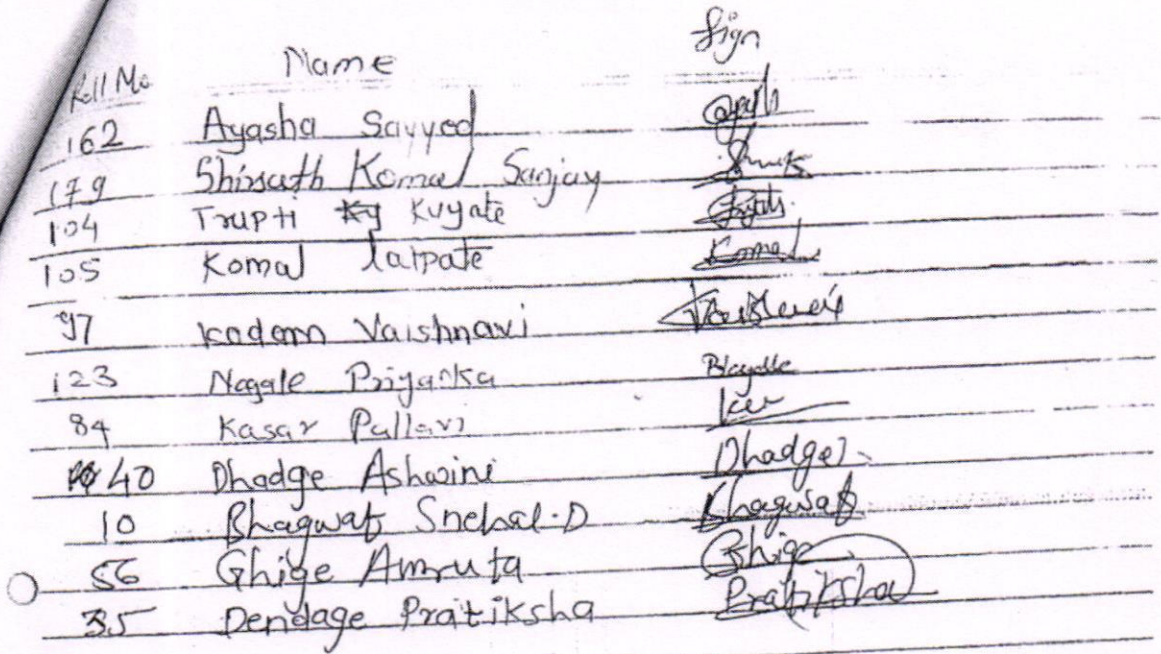 Roll No Name Sign
162 Ayasha Sayyed
179 Shirsath Komal Sanjay
104 Trupti Kuyate
105 Komal Komal
97 Kadam Vaishnavi Vaishnavi
123 Nagale Priyanka
84 Kasar Pallavi
40 Dhadge Ashwini Dhadge
10 Bhagwat Snehal.D Bhagwat
56 Ghige Amruta Ghige
35 Dendage Pratiksha Pratiksha